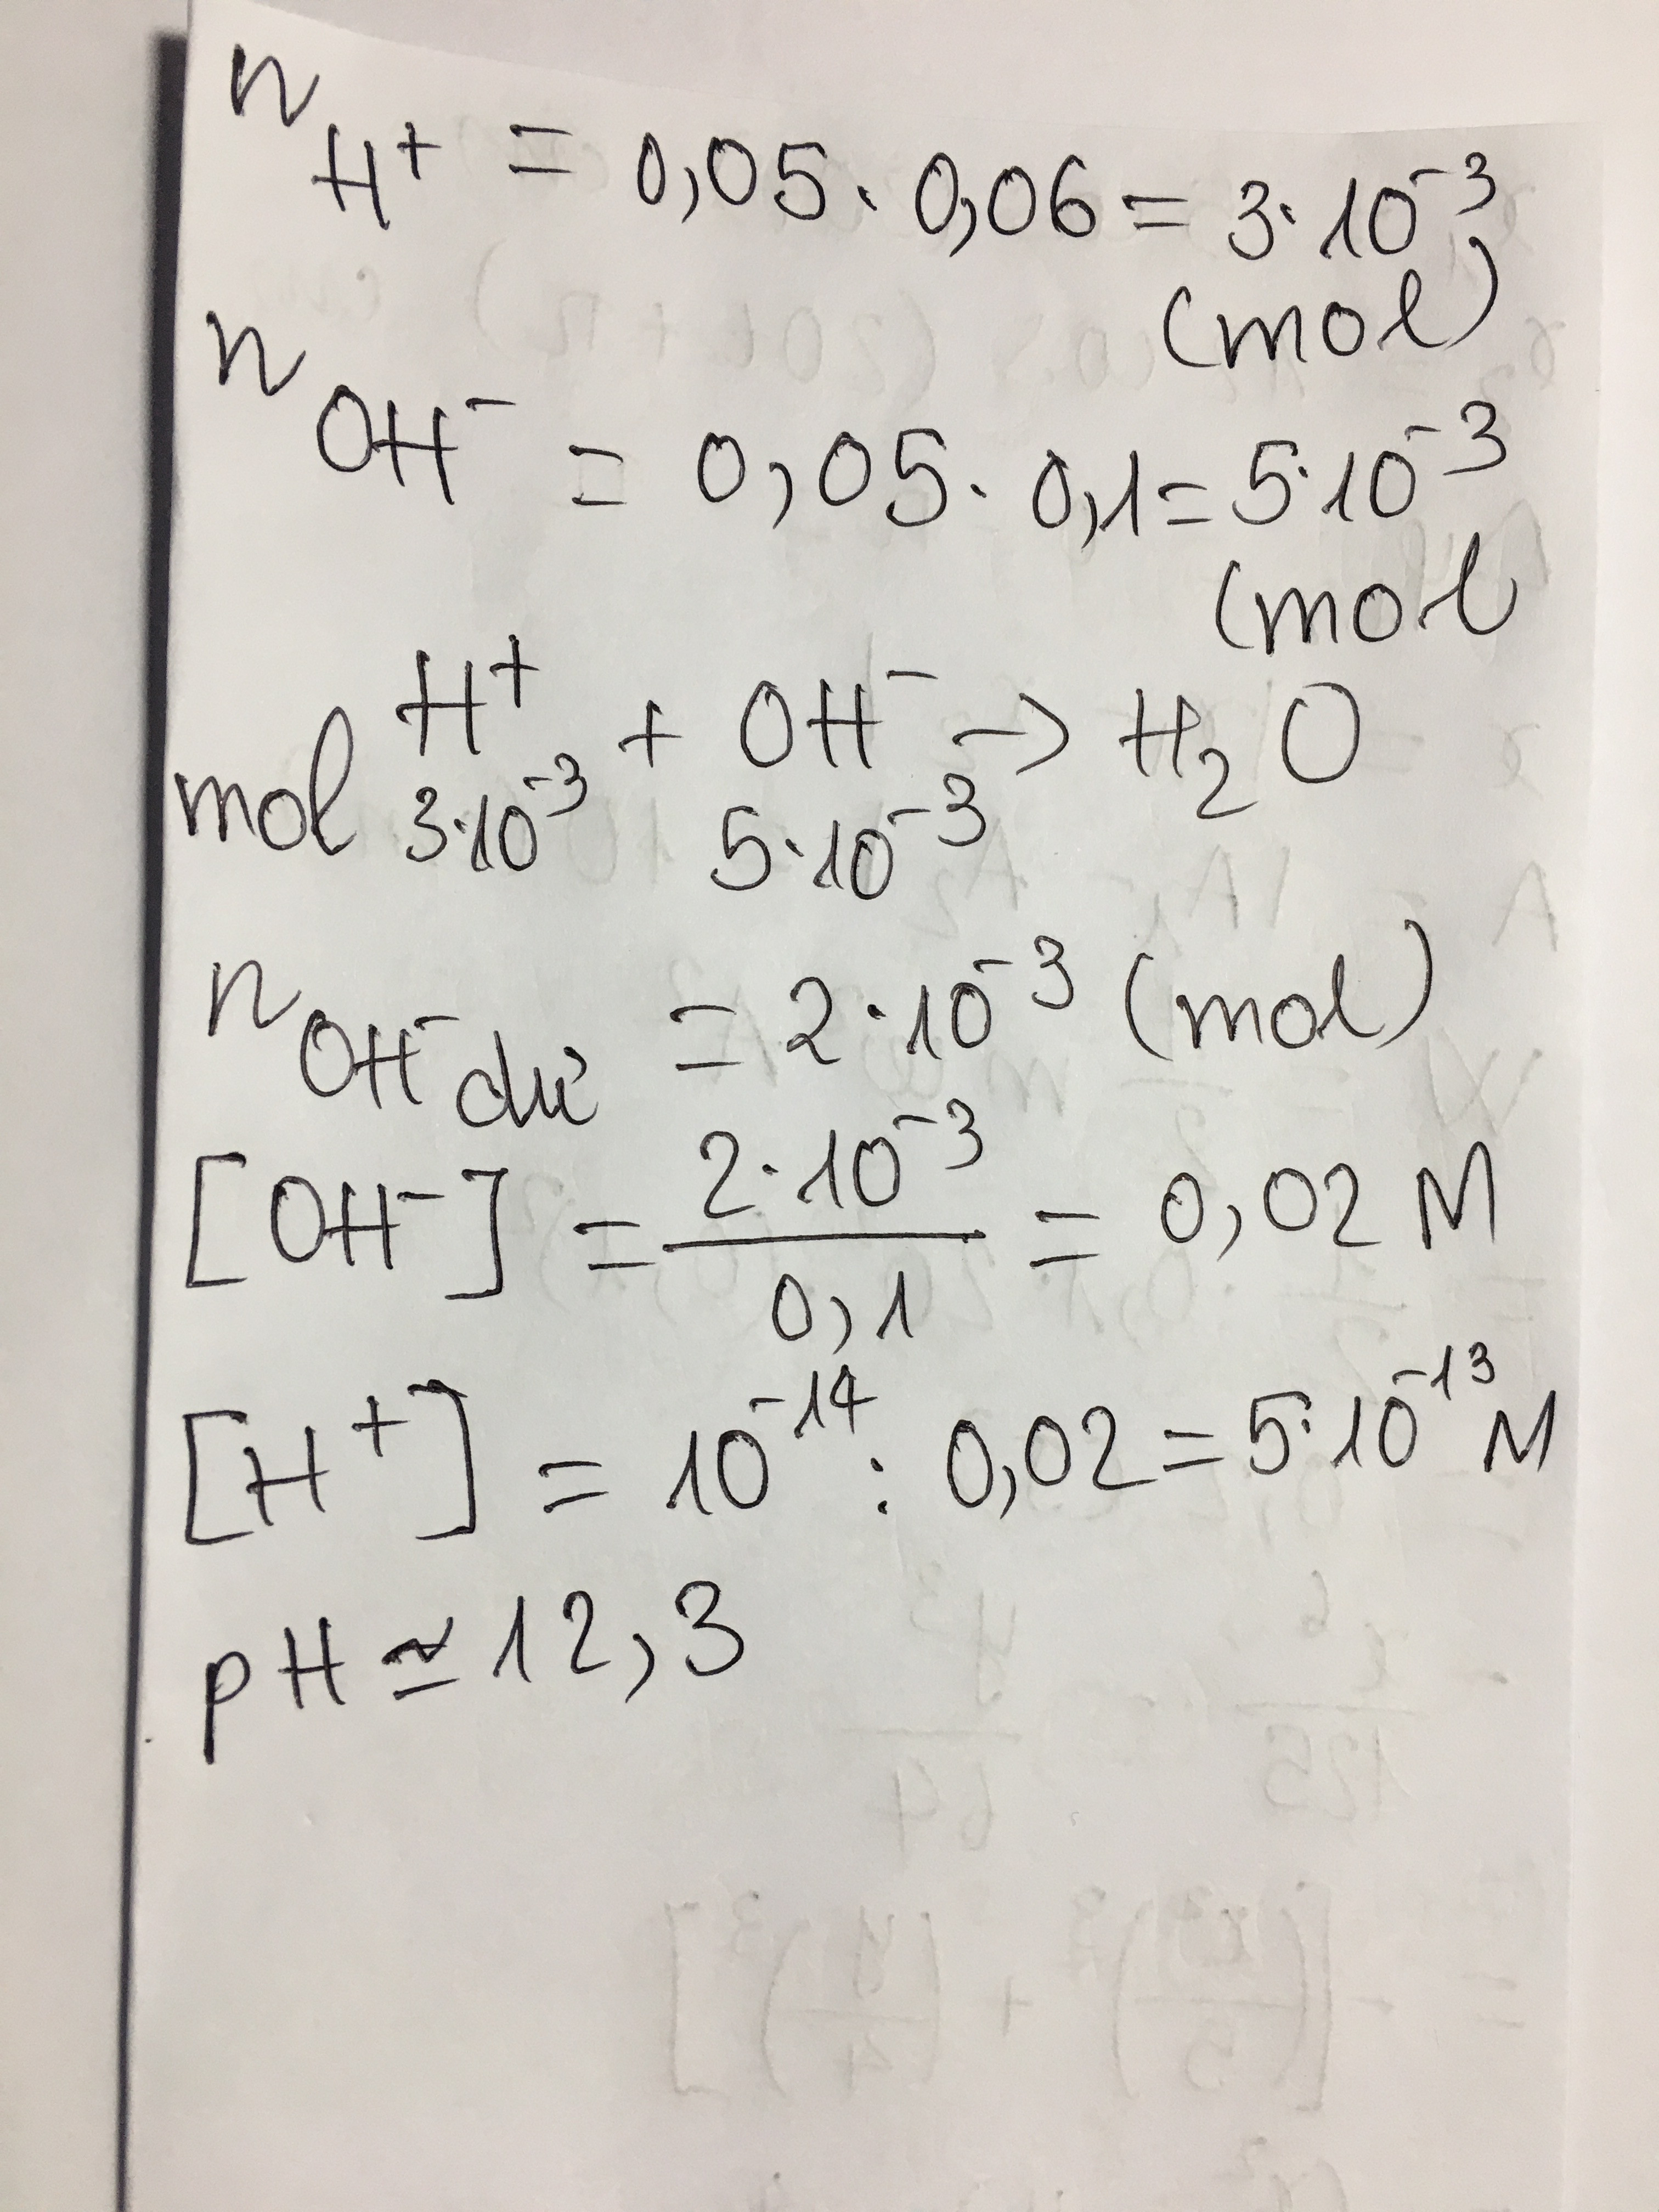 n H⁺ = 0,05 · 0,06 = 3·10⁻³
(mol)
n OH⁻ = 0,05 · 0,1 = 5·10⁻³
(mol
H⁺ + OH⁻ → H₂O
mol 3·10⁻³ 5·10⁻³
n OH⁻ dư = 2·10⁻³ (mol)
[OH⁻] = 2·10⁻³ / 0,1 = 0,02 M
[H⁺] = 10⁻¹⁴ : 0,02 = 5·10⁻¹³ M
pH ≃ 12,3